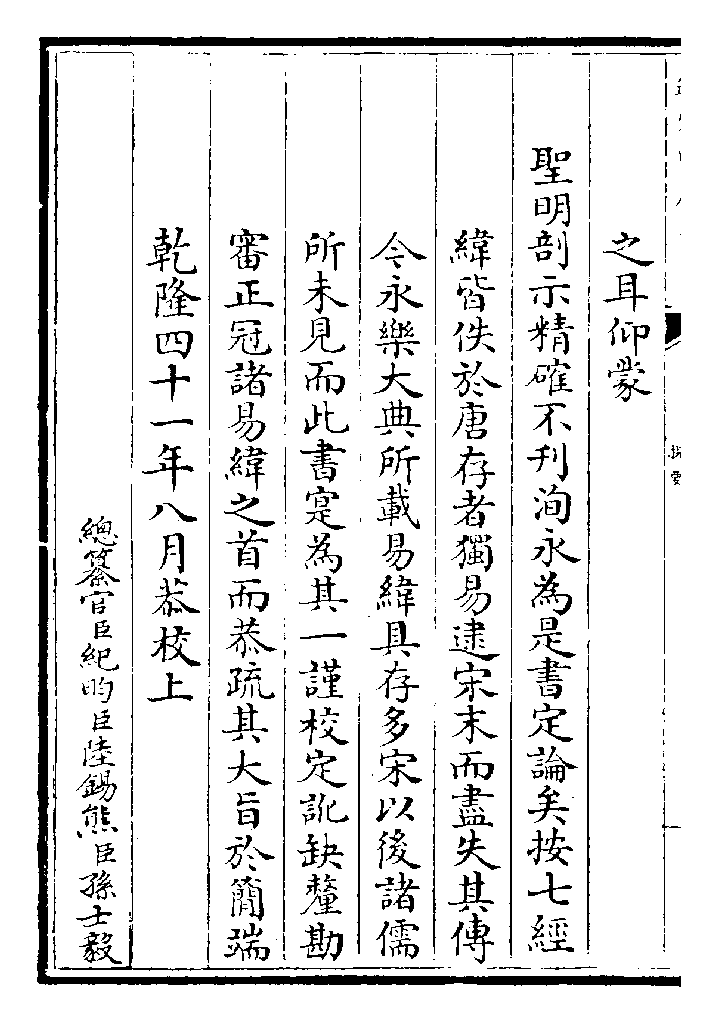 之耳仰蒙
聖明剖示精確不刋洵永為是書定論矣按七經
緯皆佚於唐存者獨易逮宋末而盡失其傳
今永樂大典所載易緯具存多宋以後諸儒
所未見而此書寔為其一謹校定訛缺釐勘
審正冠諸易緯之首而恭疏其大旨於簡端
乾隆四十一年八月恭校上
總纂官臣紀昀臣陸錫熊臣孫士毅